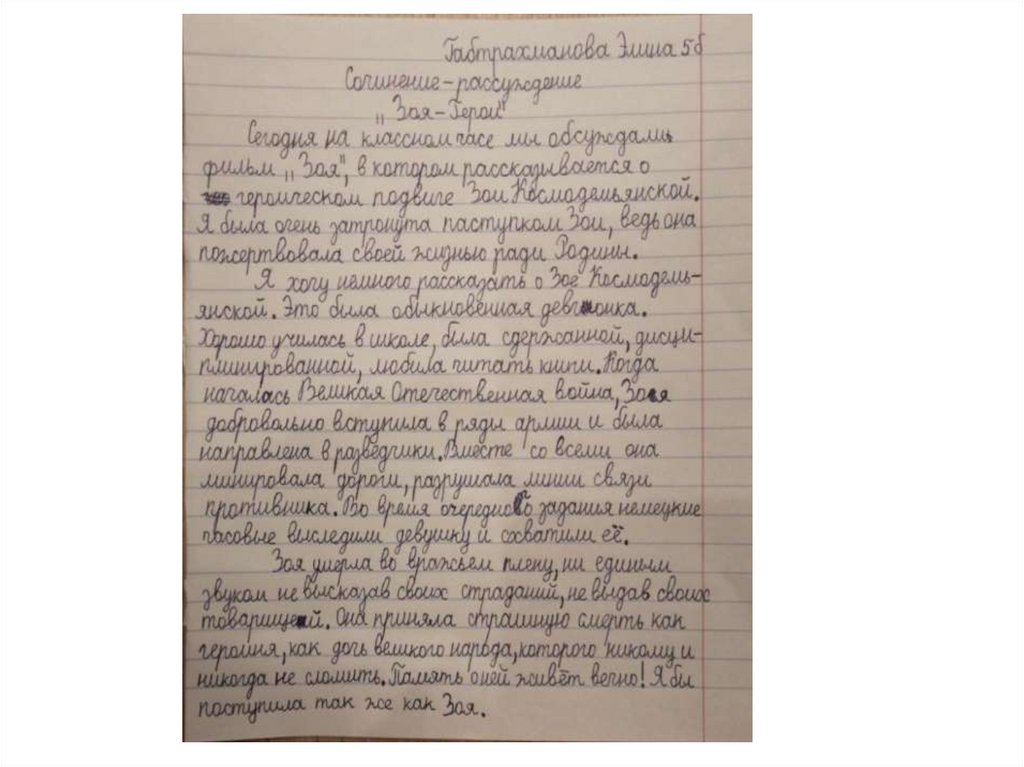 Габтрахманова Элина 5б
Сочинение-рассуждение
„Зоя-Герой"
Сегодня на классном часе мы обсуждали
фильм „Зоя", в котором рассказывается о
героическом подвиге Зои Космодемьянской.
Я была очень затронута паступком Зои, ведь она
пожертвовала своей жизнью ради Родины.
Я хочу немного рассказать о Зое Космодемь-
янской. Это была обыкновенная девчонка.
Хорошо училась в школе, была сдержанной, дисци-
плинированной, любила читать книги. Когда
началась Великая Отечественная война, Зоя
добровольно вступила в ряды армии и была
направлена в разведчики. Вместе со всеми она
минировала дороги, разрушала линии связи
противника. Во время очередного задания немецкие
часовые выследили девушку и схватили её.
Зоя умерла во вражьем плену, ни единым
звуком не высказав своих страданий, не выдав своих
товарищей. Она приняла страшную смерть как
героиня, как дочь великого народа, которого никому и
никогда не сломить. Память о ней живёт вечно! Я бы
поступила так же как Зоя.